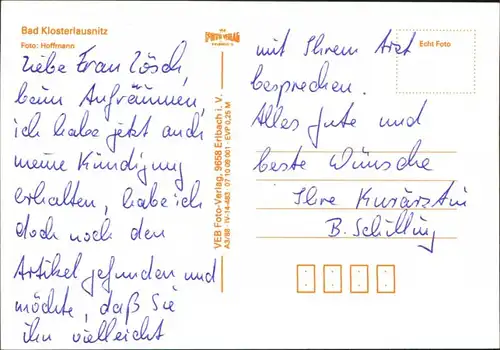 Bad Klosterlausnitz
Foto: Hoffmann
Liebe Frau Lösch,
beim Aufräumen,
ich habe jetzt auch
meine Kündigung
erhalten, habe ich
doch noch den
Artikel gefunden und
möchte, daß Sie
ihn vielleicht
FOTO VERLAG
VEB Foto-Verlag, 9658 Erlbach i. V.
A3/88 IV-14-483 07 10 09 001 · EVP 0,25 M
Echt Foto
mit Ihrem Arzt
besprechen.
Alles gute und
beste Wünsche
Ihre Kurärztin
B. Schilling